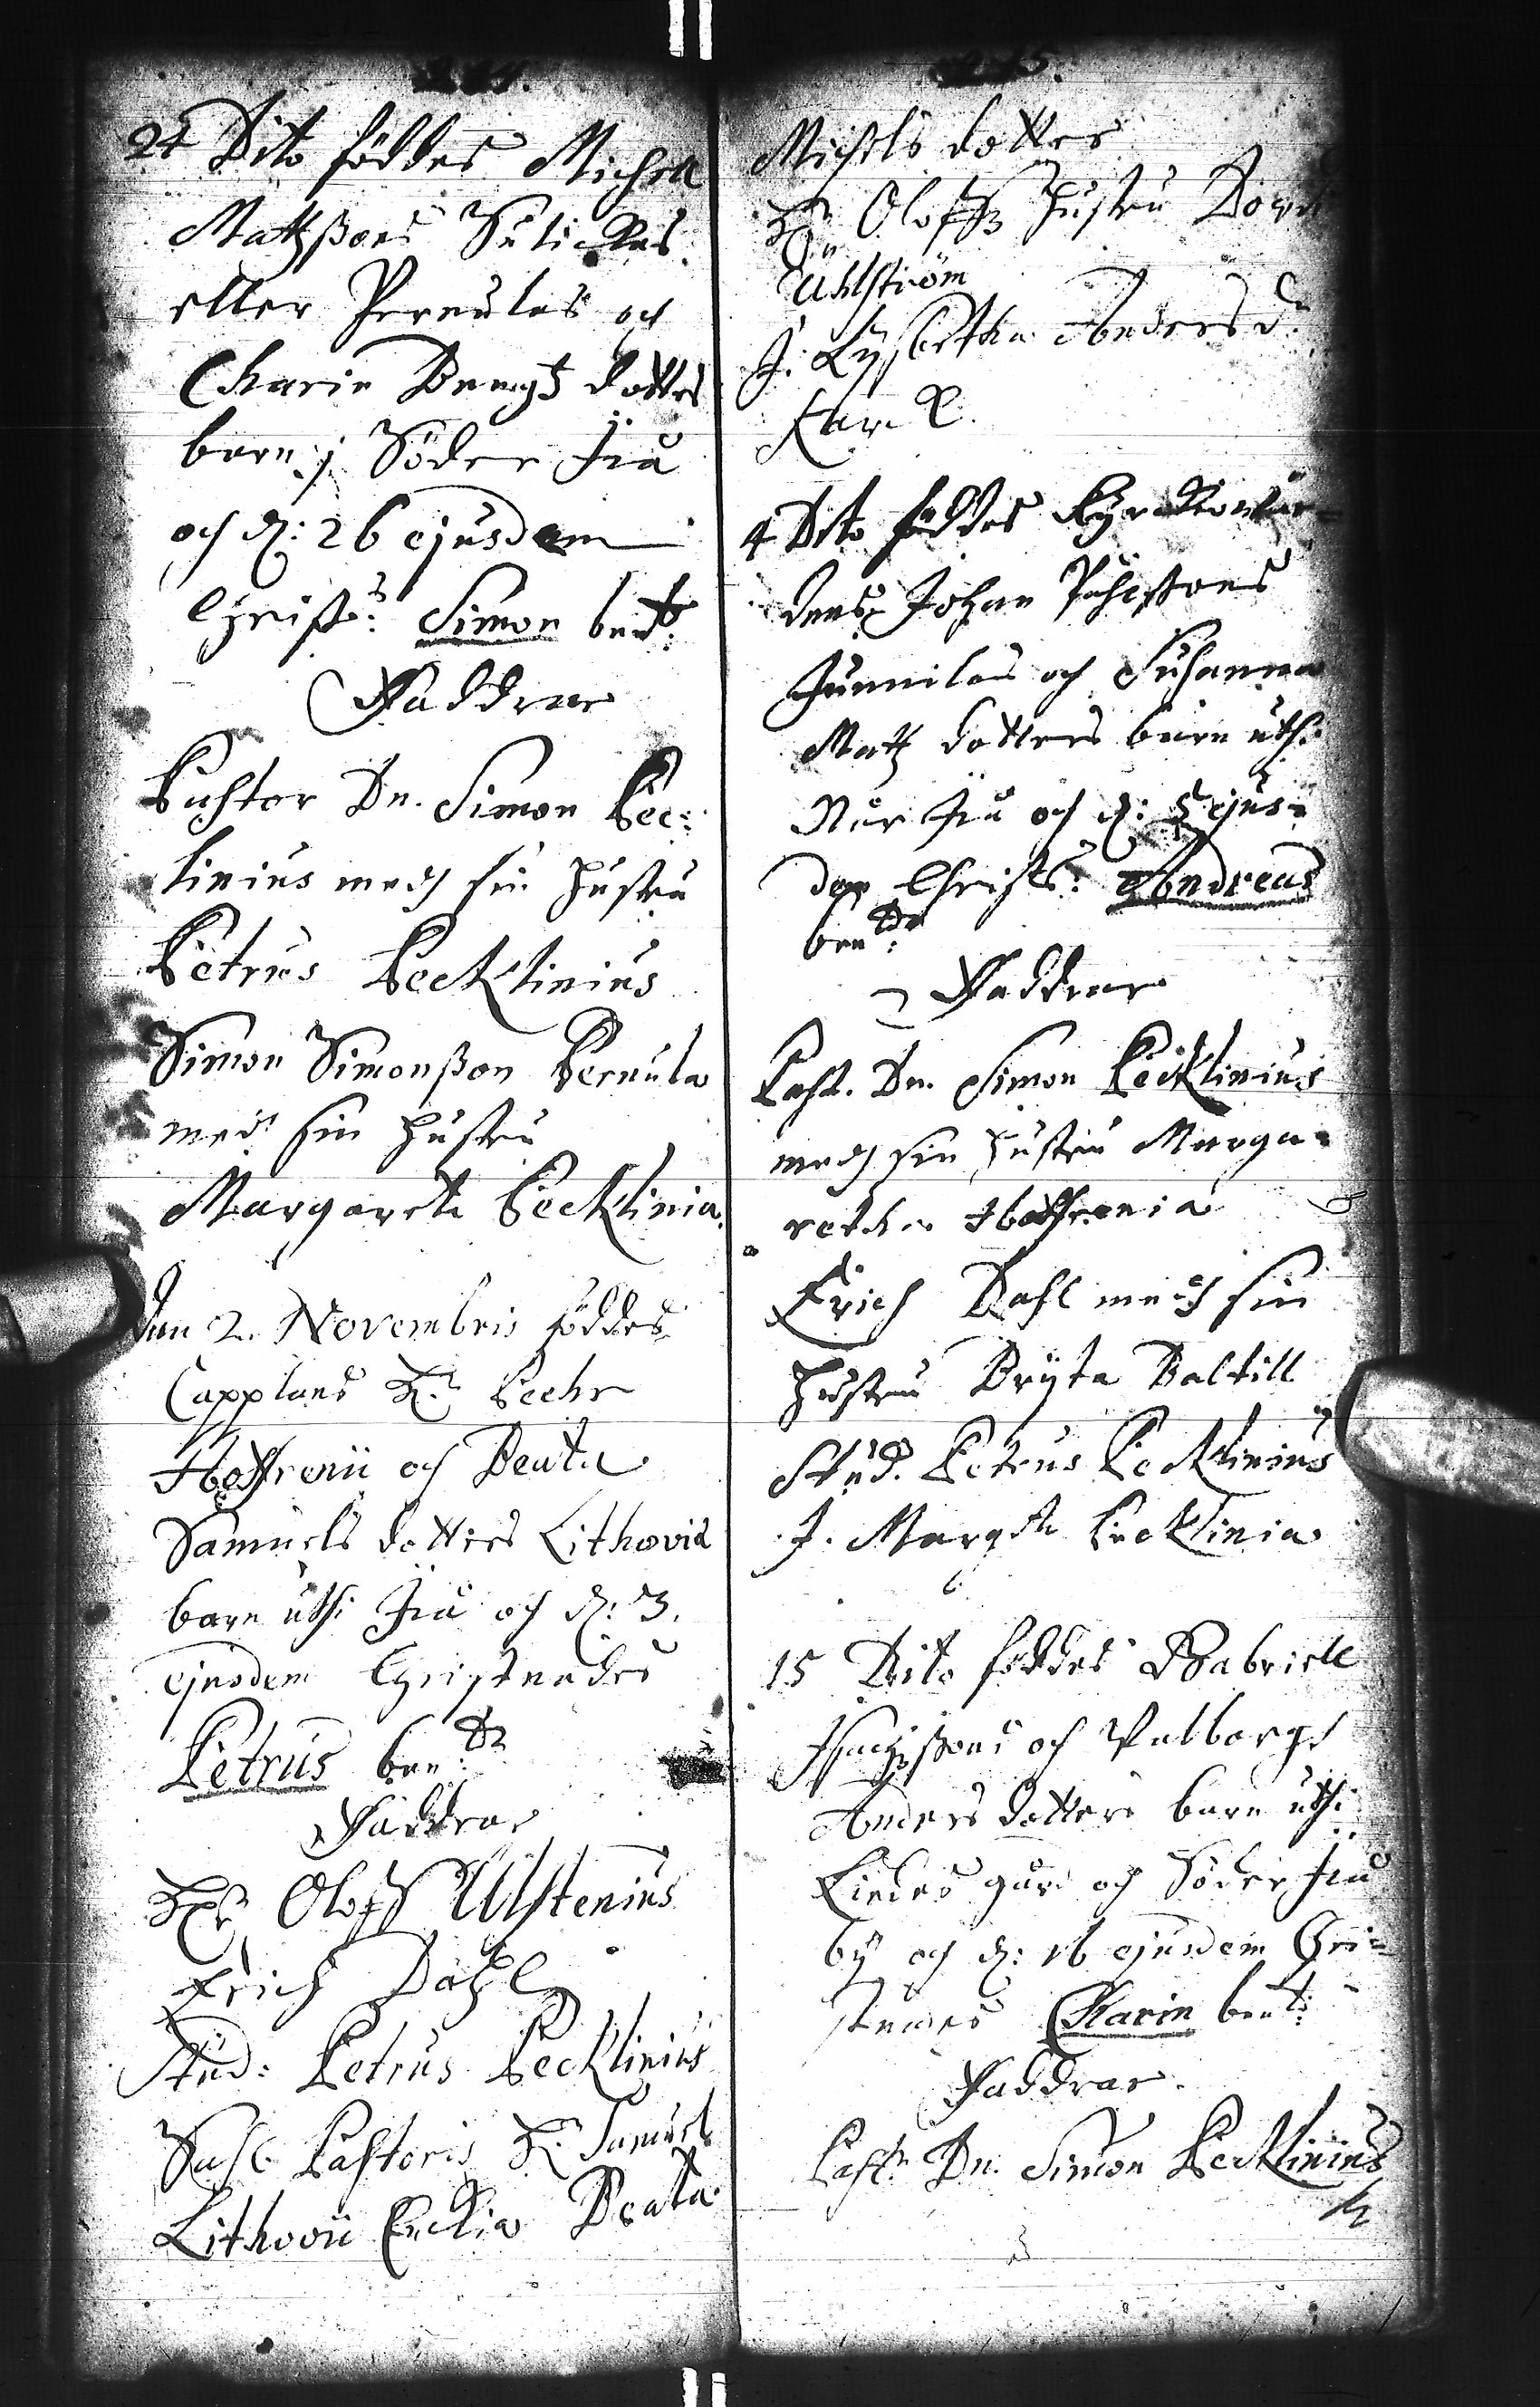 24 Dito föddes Michel
Matzßons
eller Pernulas och
Charin Bengtz dotters
barn j Söder Jiu
och d: 26 ejusdem
Christ: Simon bend:
Faddrar
Pastor Dn. Simon Pec:
linius medh sin hustru
Petrus Pecklinius
Simon Simonßon Pernula
med sin hustru
Margareta Pecklinia.
Den 2. Novembris föddes
Capplans H: Pehr
och Beata
Samuels dotters Lithovia
barn uthi Jiu och d: 3.
ejusdem Christnades
Petrus ben:dr
Faddrar
Hr Oloff Ulstenius
Erich Dahl
Stud: Petrus Pecklinius
Sahl. Pastoris H. Samuel
Lithovii Beata
Michels dotter
Hr Oloffz hustru
Uhlström
J. Lysbetha Anders d:
4 Dito föddes
dens Johan Påhlßons
Junnilas och Susanna
Matz dotters barn uthi
Nor Jiu och d: 5 ejus:
dem Christ: Andreas
ben:dr
Faddrar
Past. Dn. Simon Pecklinius
medh sin hustru Marga:
retha
Erich Dahl medh sin
hustru Bryta Baltill
Stud. Petrus Pecklinius
J. Margta Pecklinia
15 Dito föddes Gabriell
och Valborgs
Anders dotters barn uthi
gård och Söder Jiu
by och d: 16 ejusdem Chri=
stnades Charin bent:
Faddrar.
Past. Dn. Simon Pecklinius